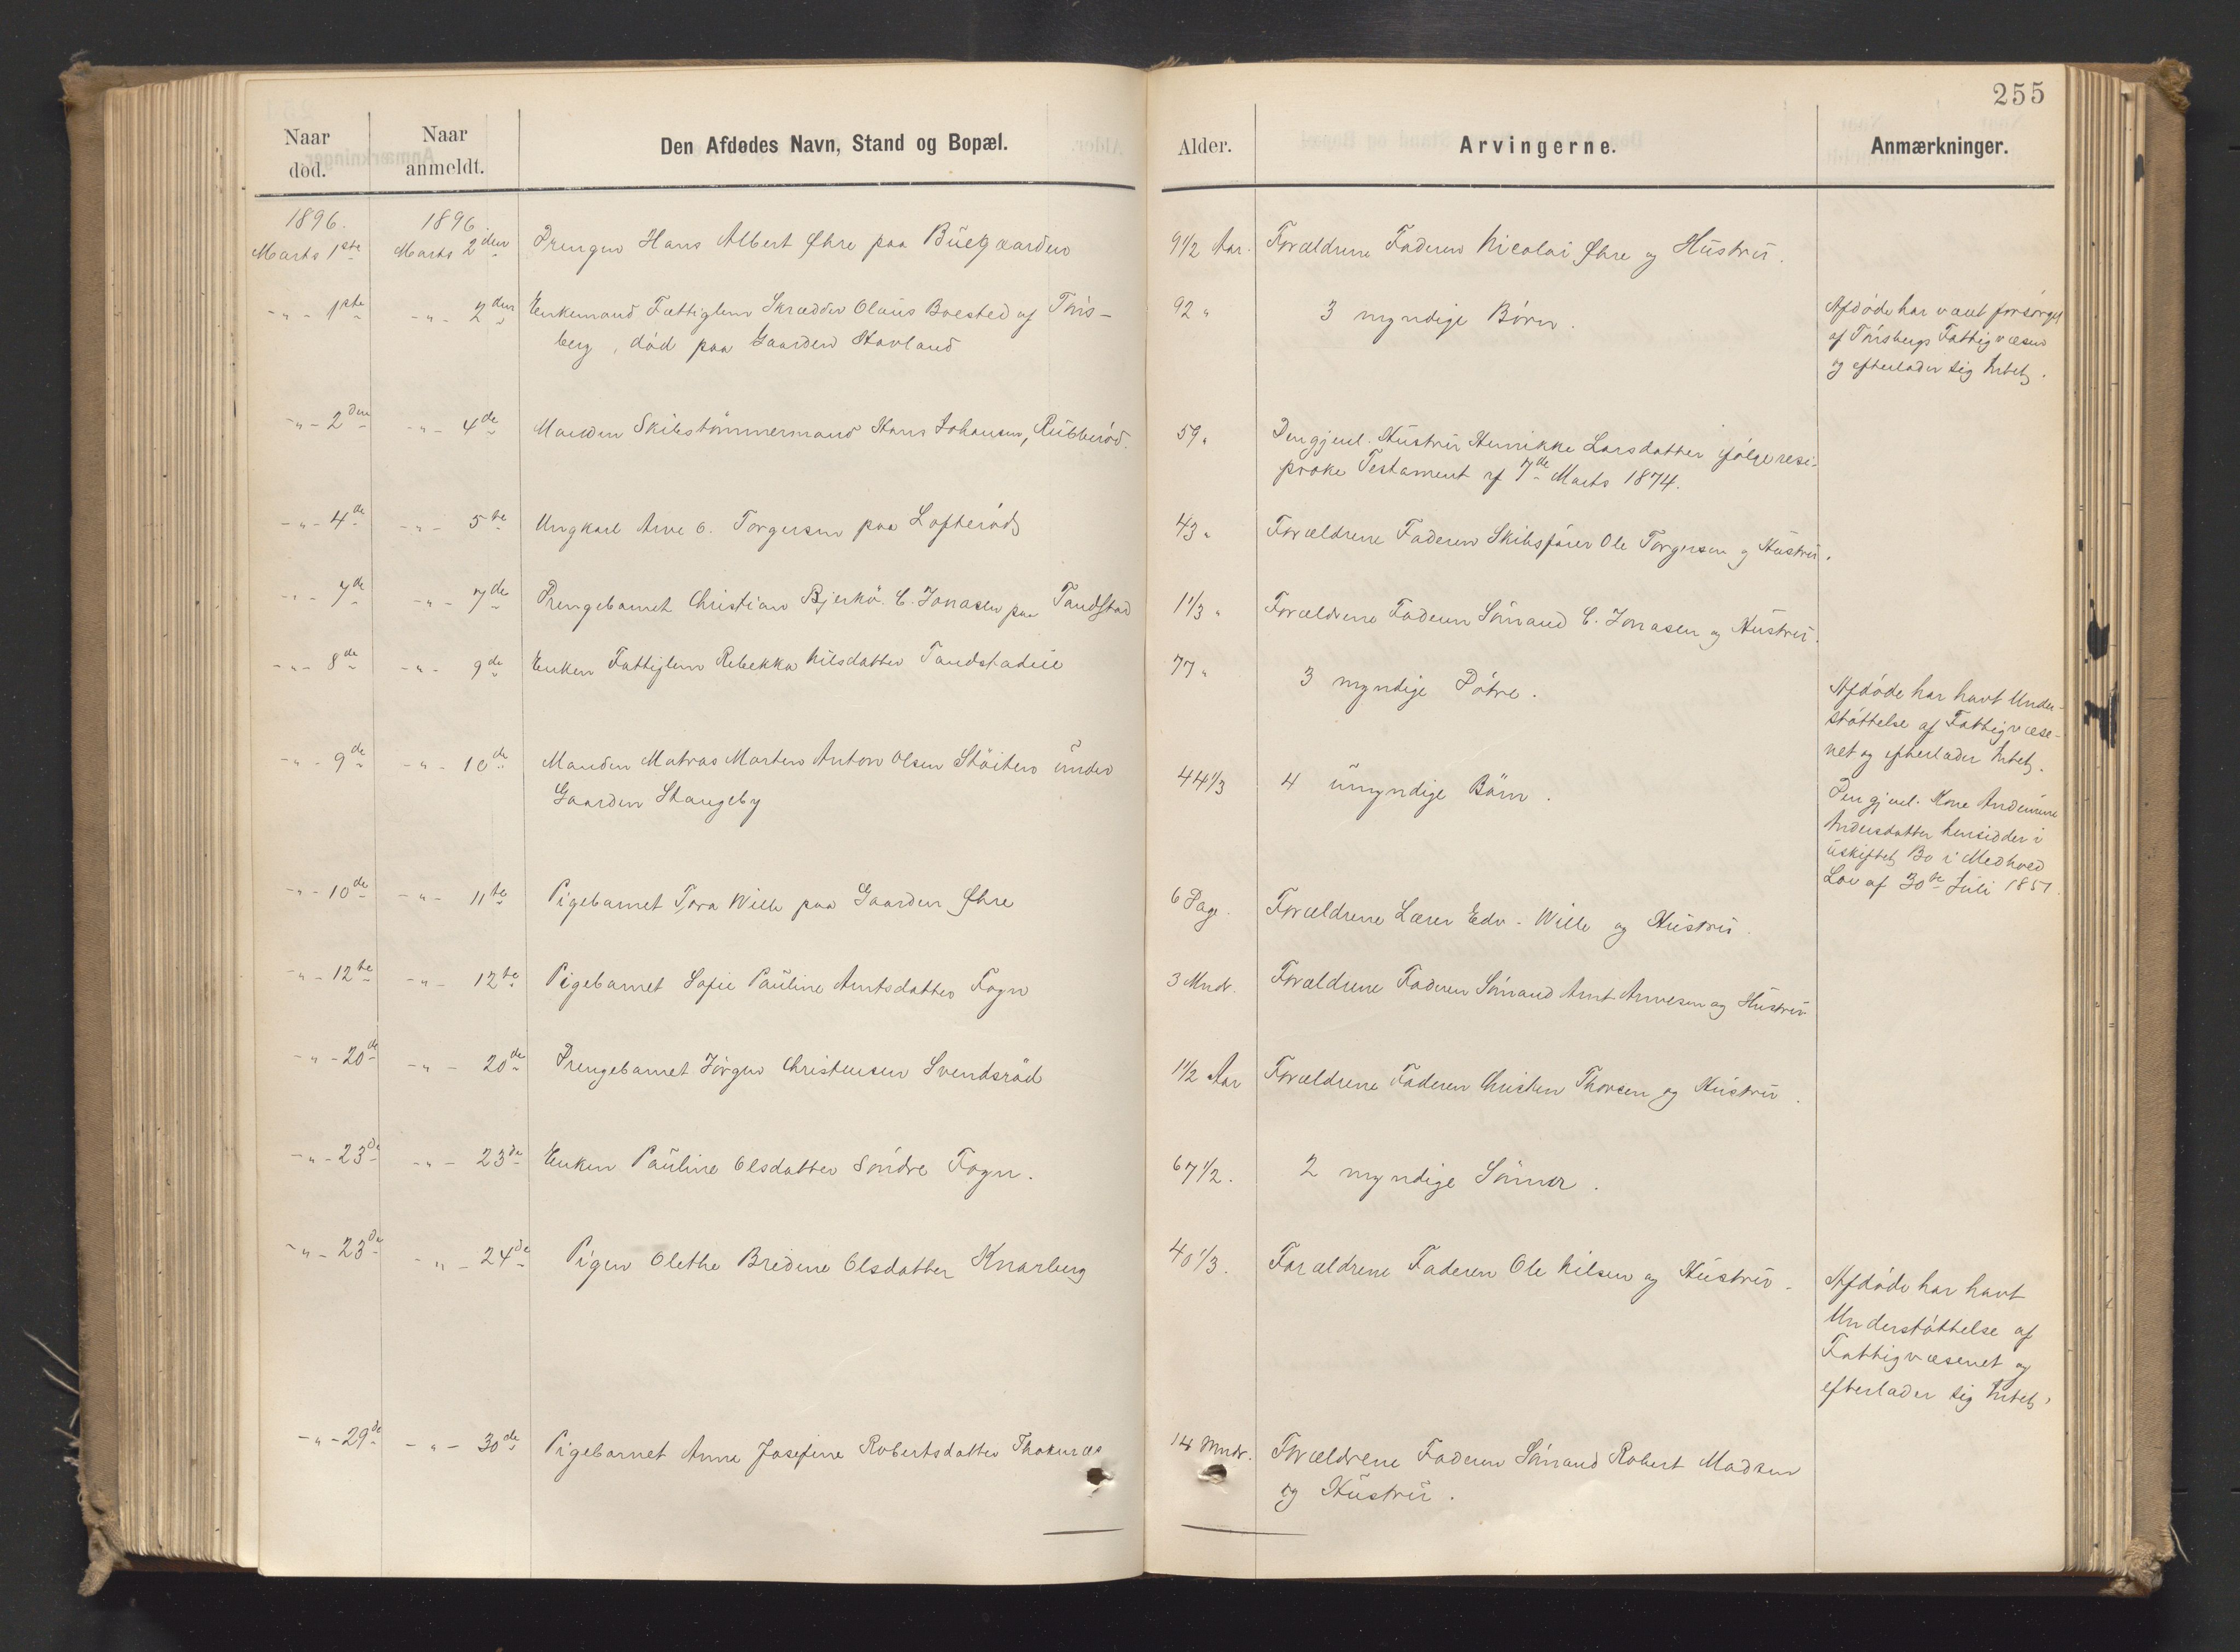 255
Naar død.
Naar anmeldt.
Den Afdødes Navn, Stand og Bopæl.
Alder.
Arvingerne.
Anmærkninger.
1896.
1896.
Marts 1ste
Marts 2den
Drengen Hans Albert Øhre paa Buegaarden
9 1/2 Aar.
Forældrene Faderen Nicolai Øhre og Hustru.
-"- 1ste
-"- 2den
Enkemand Fattiglem Skrædder Olaus Boested af Tøns-
berg, død paa Gaarden Havland
92 "
3 myndige Børn.
Afdøde har været forsørget
af Tønsbergs Fattigvæsen
og efterlader sig Intet.
-"- 2den
-"- 4de
Manden Skibstømmermand Hans Johansen, Rubberød.
59 "
Den gjenl. Hustru Henrikke Larsdatter ifølge resi-
proke Testament af 7de Marts 1874.
-"- 4de
-"- 5te
Ungkarl Arve O. Torgersen paa Lofterød
43 "
Forældrene Faderen Skibsfører Ole Torgersen og Hustru.
-"- 7de
-"- 7de
Drengebarnet Christian Bjerkø C. Jonasen paa Tandstad
1 1/3 "
Forældrene Faderen Sømand C. Jonasen og Hustru.
-"- 8de
-"- 9de
Enken Fattiglem Rebekka Nilsdatter Tandstadeie
77 "
3 myndige Døtre.
Afdøde har havt Under-
støttelse af Fattigvæse-
net og efterlader Intet.
-"- 9de
-"- 10de
Manden Matros Morten Anton Olsen Støiten under
Gaarden Stangeby
44 1/3
4 umyndige Børn.
Den gjenl. Kone Andemine
Andersdatter hensidder i
uskiftet Bo i Medhold
Lov af 30te Juli 1851.
-"- 10de
-"- 11te
Pigebarnet Tora Wille paa Gaarden Øhre
6 Dage.
Forældrene Lærer Edv. Wille og Hustru.
-"- 12te
-"- 12te
Pigebarnet Sofie Pauline Arntsdatter Fogn
3 Mndr.
Forældrene Faderen Sømand Arnt Arnesen og Hustru
-"- 20de
-"- 20de
Drengebarnet Jørgen Christensen Svendsrød
1 1/2 Aar
Forældrene Faderen Christen Thorsen og Hustru.
-"- 23de
-"- 23de
Enken Pauline Olsdatter Søndre Fogn.
67 1/2.
2 myndige Sønner.
-"- 23de
-"- 24de
Pigen Olethe Bredine Olsdatter Knarberg
40 1/3.
Forældrene Faderen Ole Nilsen og Hustru.
Afdøde har havt
Understøttelse af
Fattigvæsenet og
efterlader sig Intet.
-"- 29de
-"- 30de
Pigebarnet Anna Josefine Robertsdatter
14 Mndr.
Forældrene Faderen Sømand Robert Madsen
og Hustru.